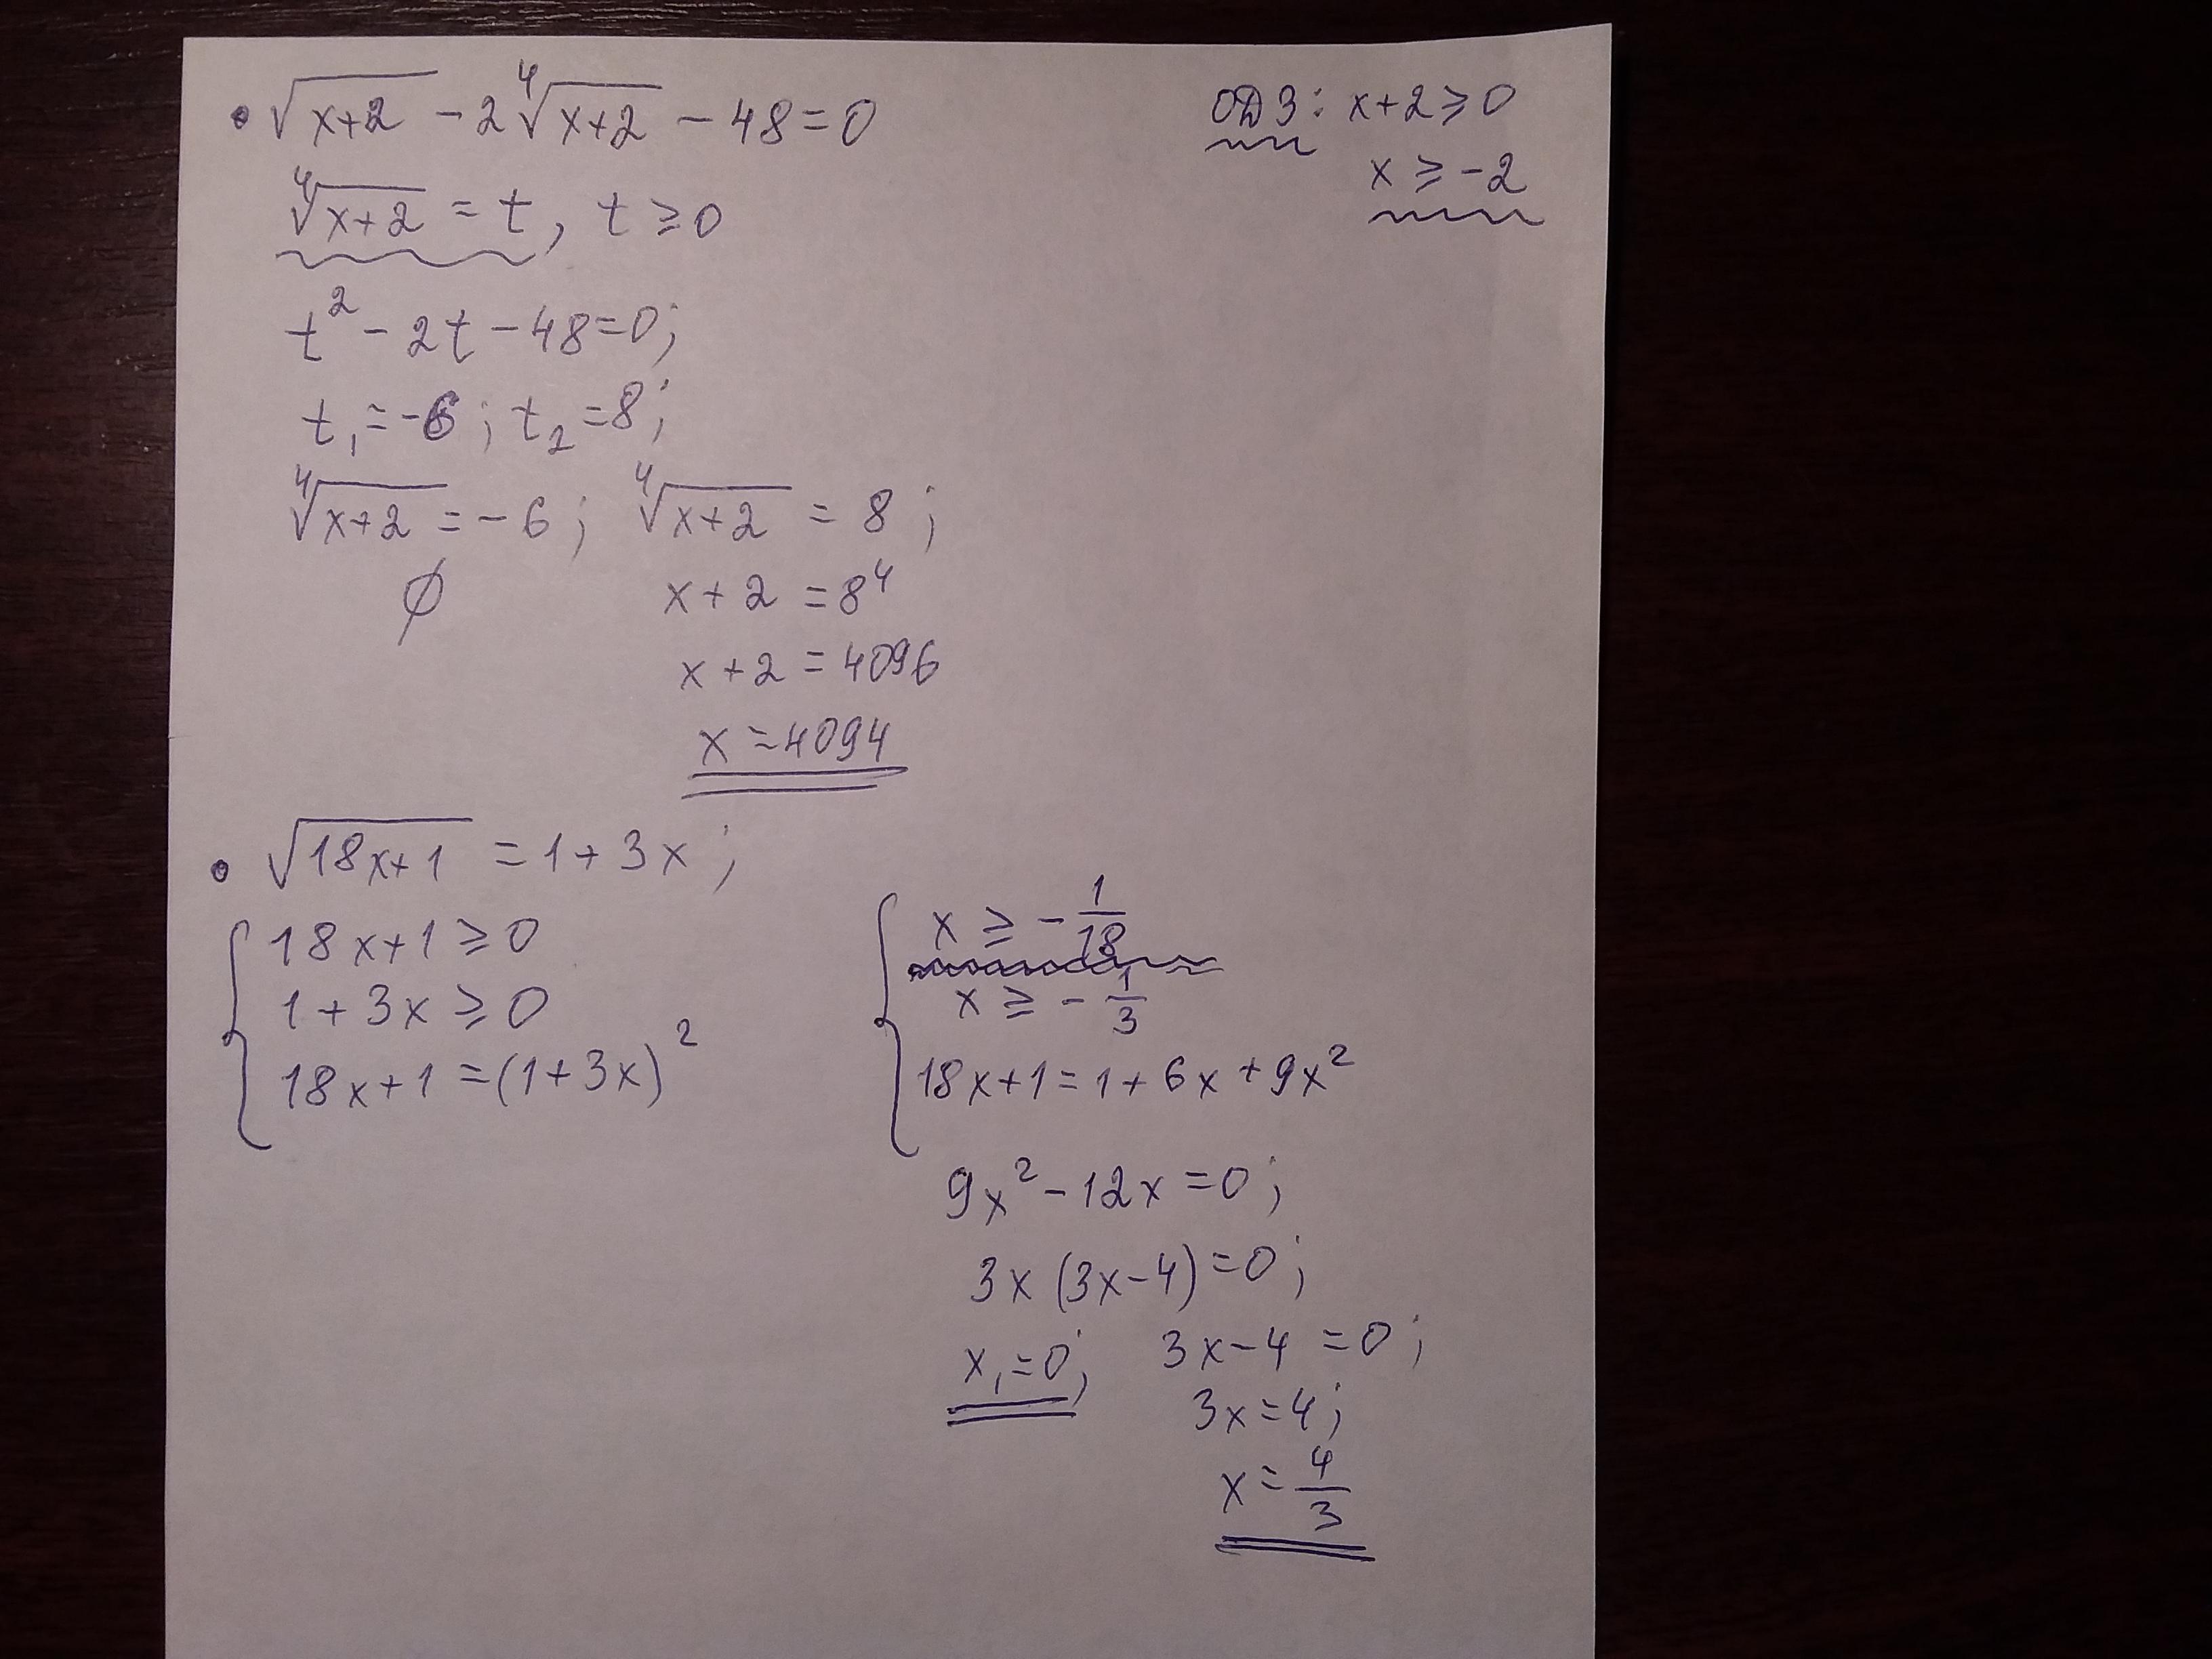 • √(x+2) - 2∜(x+2) - 48 = 0
ОДЗ: x+2 ≥ 0
x ≥ -2
∜(x+2) = t, t ≥ 0
t² - 2t - 48 = 0;
t₁ = -6; t₂ = 8;
∜(x+2) = -6; ∜(x+2) = 8;
∅
x + 2 = 8⁴
x + 2 = 4096
x = 4094
• √(18x+1) = 1 + 3x;
{ 18x+1 ≥ 0
1 + 3x ≥ 0
18x+1 = (1+3x)²
{ x ≥ - 1/18
x ≥ - 1/3
18x+1 = 1 + 6x + 9x²
9x² - 12x = 0;
3x (3x-4) = 0;
x₁ = 0; 3x-4 = 0;
3x = 4;
x = 4/3